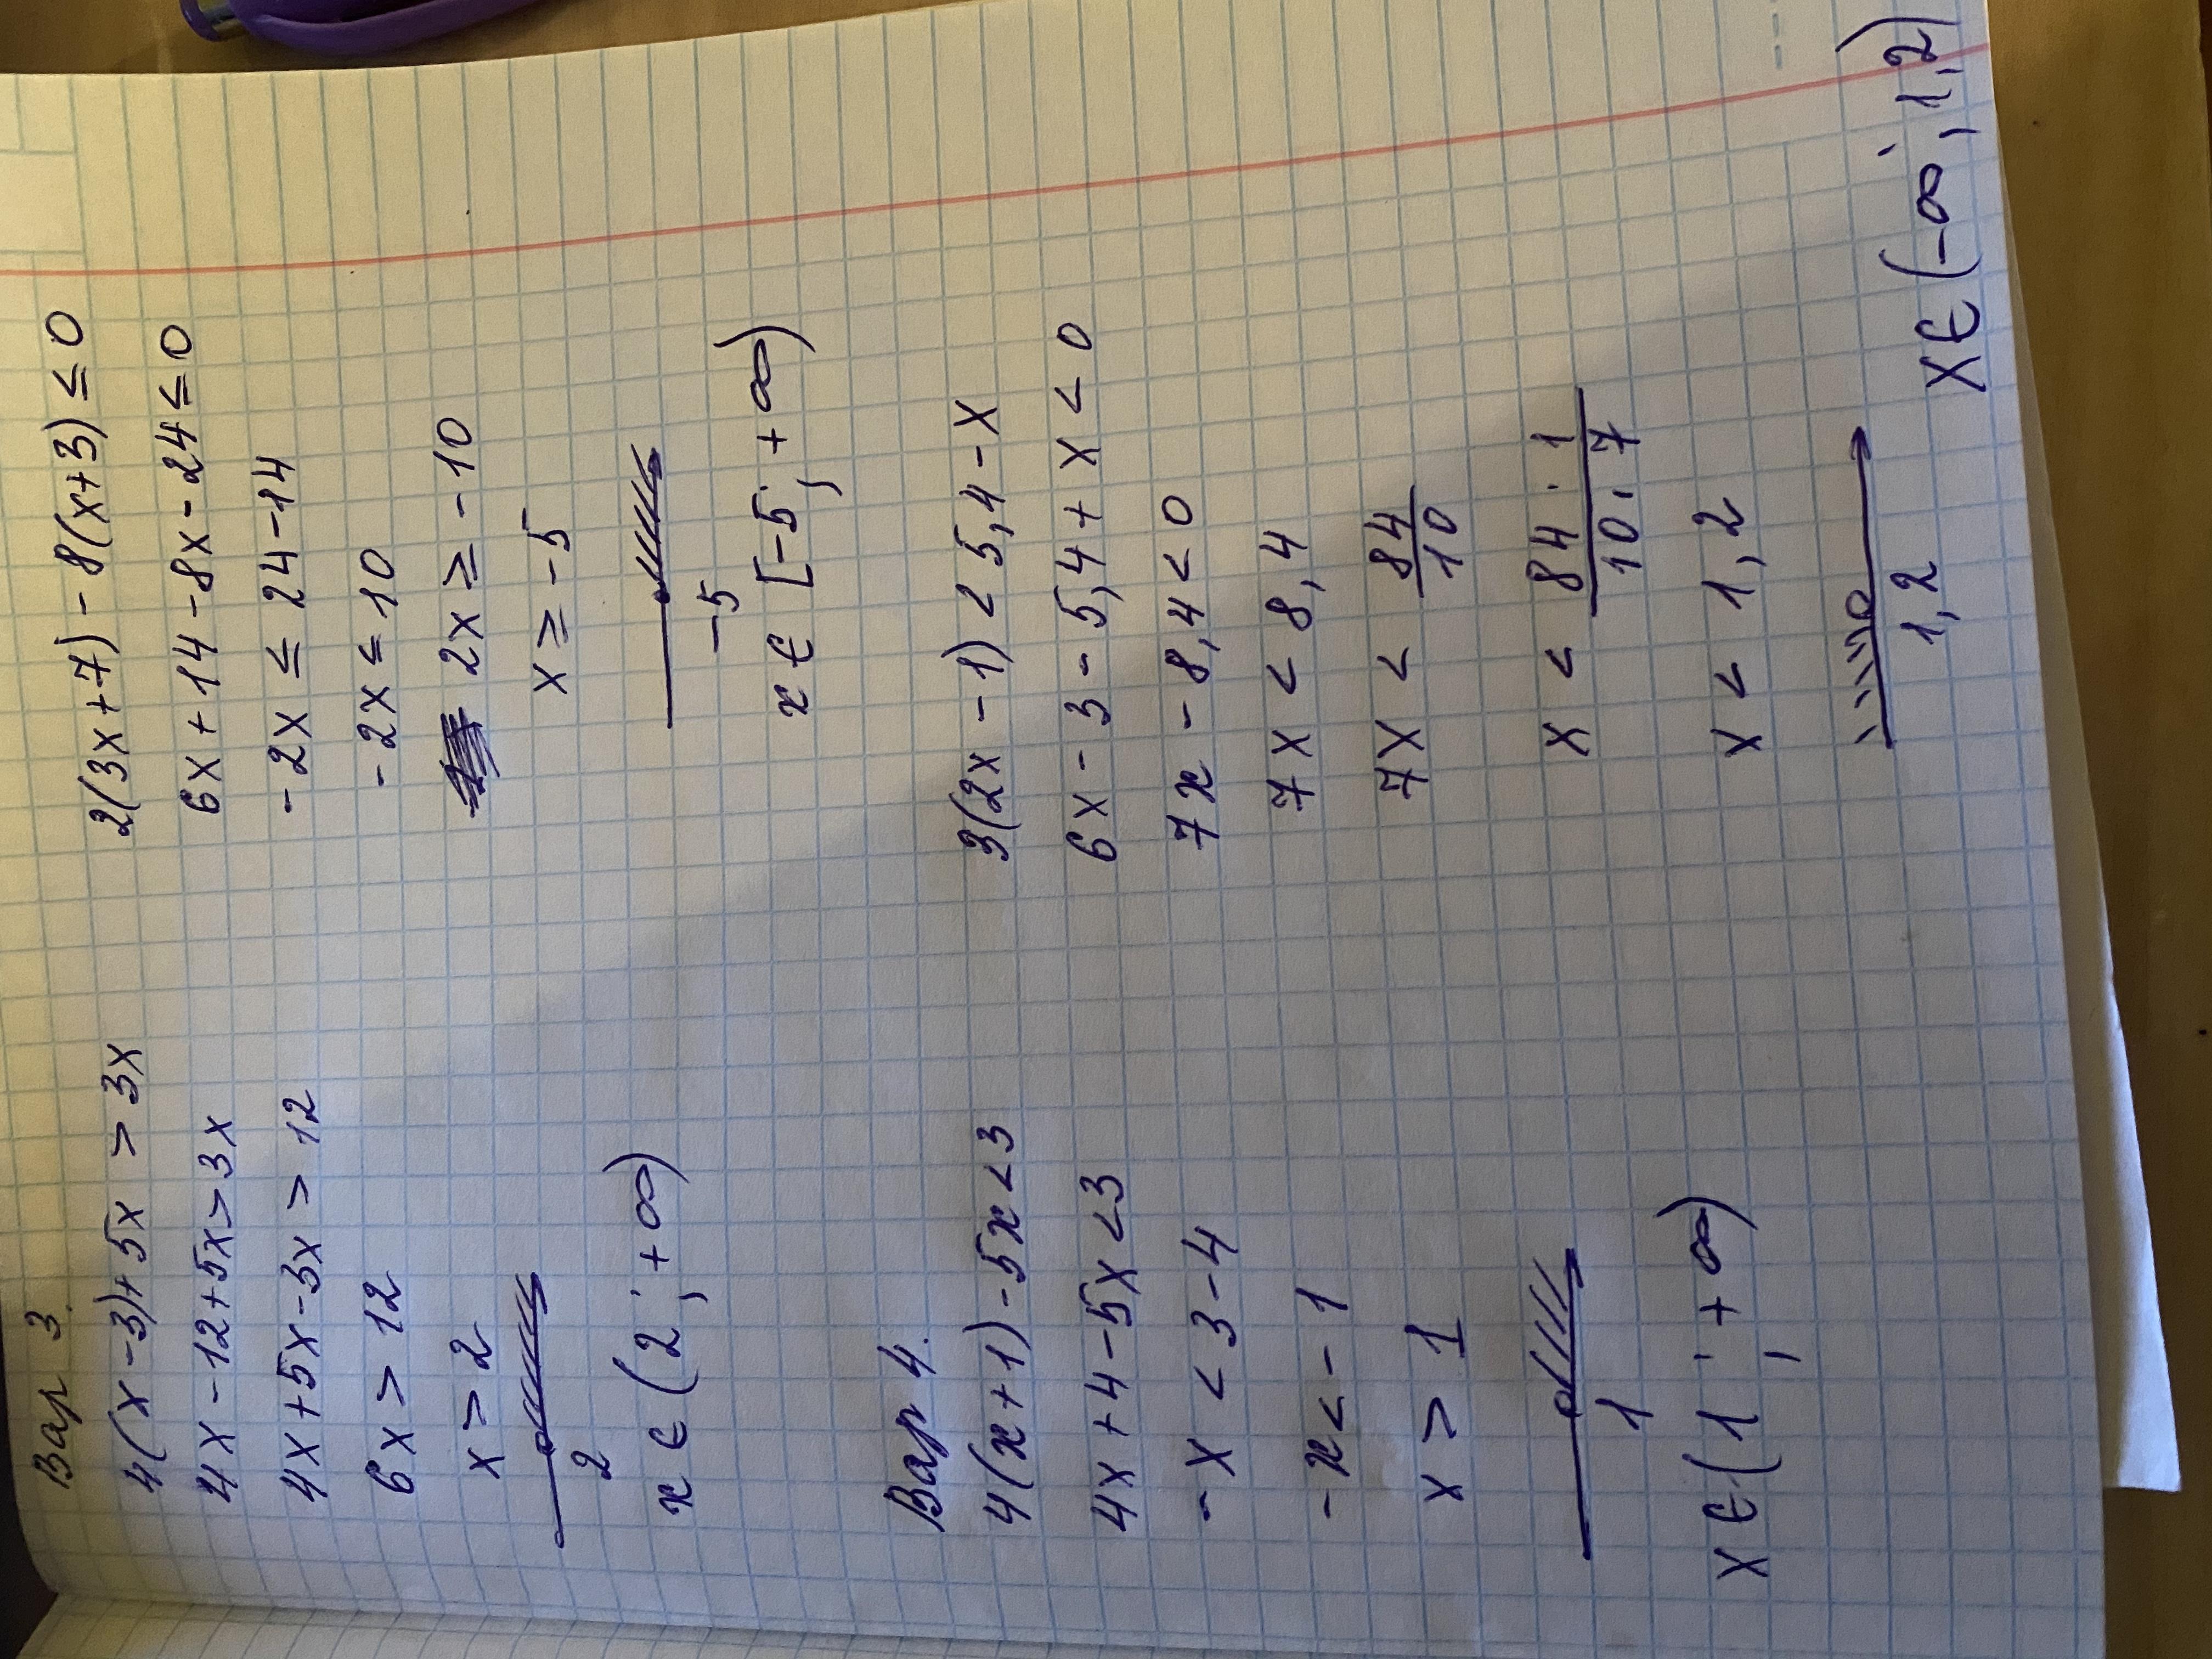 Вар 3.
4(x-3)+5x > 3x
4x-12+5x>3x
4x+5x-3x > 12
6x > 12
x > 2
2
x ∈ (2; +∞)
2(3x+7) - 8(x+3) ≤ 0
6x+14-8x-24≤0
-2x ≤ 24-14
-2x ≤ 10
2x ≥ -10
x ≥ -5
-5
x ∈ [-5; +∞)
Вар 4.
4(x+1)-5x<3
4x+4-5x<3
-x < 3-4
-x < -1
x > 1
1
x ∈ (1; +∞)
3(2x-1) < 5,4-x
6x-3-5,4+x < 0
7x-8,4<0
7x < 8,4
7x < 84/10
x < 84·1/10·7
x < 1,2
1,2
x ∈ (-∞; 1,2)